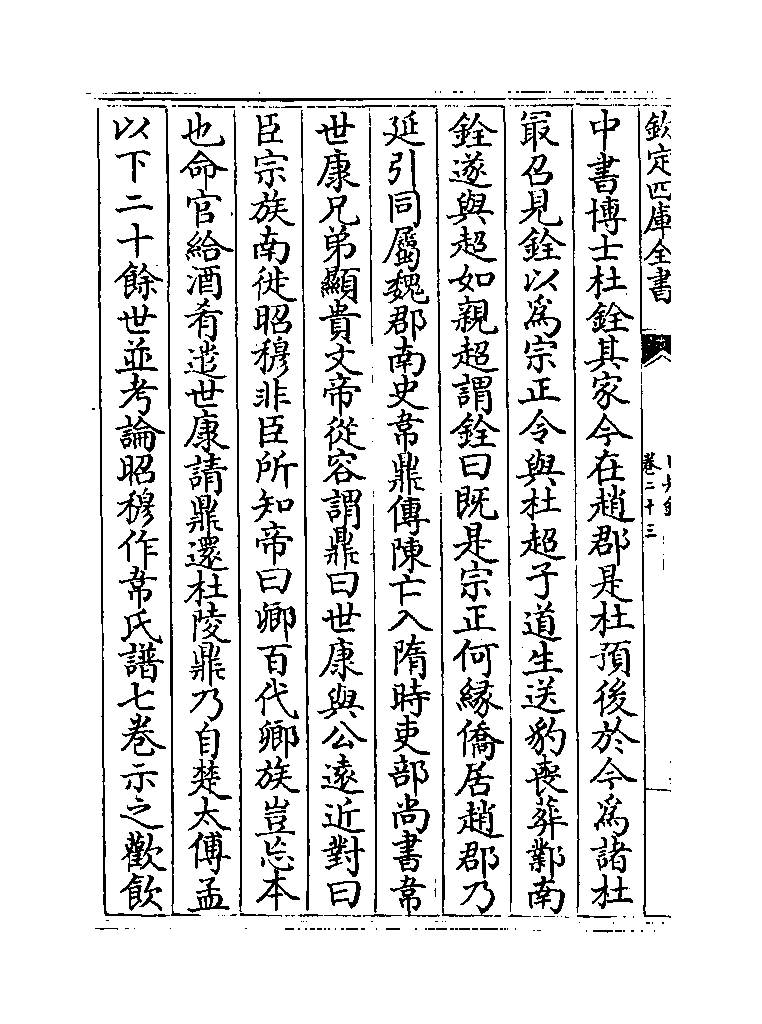 欽定四庫全書
卷二十三
中書博士杜銓其家今在趙郡是杜預後於今為諸杜
最召見銓以為宗正令與杜超子道生送豹喪葬鄴南
銓遂與超如親超謂銓曰既是宗正何縁僑居趙郡乃
延引同屬魏郡南史韋鼎傳陳亡入隋時吏部尚書韋
世康兄弟顯貴文帝從容謂鼎曰世康與公遠近對曰
臣宗族南徙昭穆非臣所知帝曰卿百代卿族豈忘本
也命官給酒肴遣世康請鼎還杜陵鼎乃自楚太傅孟
以下二十餘世並考論昭穆作韋氏譜七卷示之歡飲